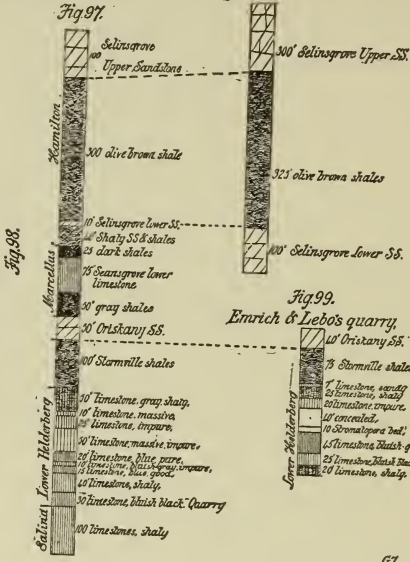 Fig.97.
Selinsgrove
100
Upper Sandstone
Hamilton
300 olive brown shale
10' Selinsgrove lower SS.
Shaly SS & shales
25 dark shales
Marcellus
75' Seansgrove lower
limestone
50' gray shales
50' Oriskany SS.
100' Stormville shales
Lower Helderberg
50' limestone, gray, shaly,
10' limestone, massive,
25' limestone, impure,
50' limestone, massive, impure,
20' limestone, blue, pure,
10' limestone, bluish gray, impure,
15 limestone, blue, good,
40' limestone, shaly,
30' limestone, bluish black. Quarry
Salina
100 limestones, shaly
Fig.98.
300' Selinsgrove Upper SS.
325' olive brown shales
100' Selinsgrove Lower SS.
Fig.99.
Emrich & Lebo's quarry,
40' Oriskany SS.
75 Stormville shales
Lower Helderberg
limestone, sandy
25' limestone, shaly
20' limestone, impure,
10' concealed,
10 Stromatopora bed,
45 limestone, bluish g
25 limestone, bluish Blac
20' limestone, shaly.
G7.